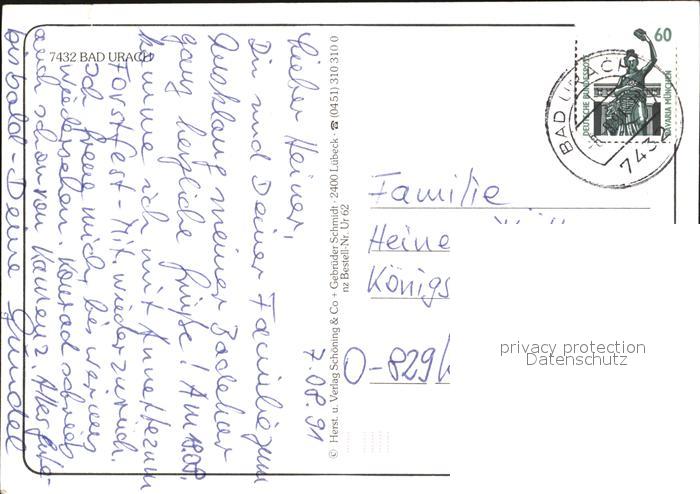 7432 BAD URACH
7.08.91
Lieber Heiner,
Dir und Deiner Familie zum
Ausklang meiner Badekur
ganz herzliche Grüße! Am 18.08.
komme ich mit Annerl zum
Forstfest - Mit. wieder zurück.
Ich freue mich, bis wir uns
wiedersehen. Konrad schrieb
auch schon von Kamenz. Alles Gute -
bis bald - Deine Gündel
© Herst. u. Verlag Schöning & Co + Gebrüder Schmidt · 2400 Lübeck · ☎ (0451) 310 310 0
nz Bestell-Nr. Ur 62
60
DEUTSCHE BUNDESPOST
BAVARIA MÜNCHEN
BAD URACH
7432
Familie
Heine
Königs
O-829
privacy protection
Datenschutz